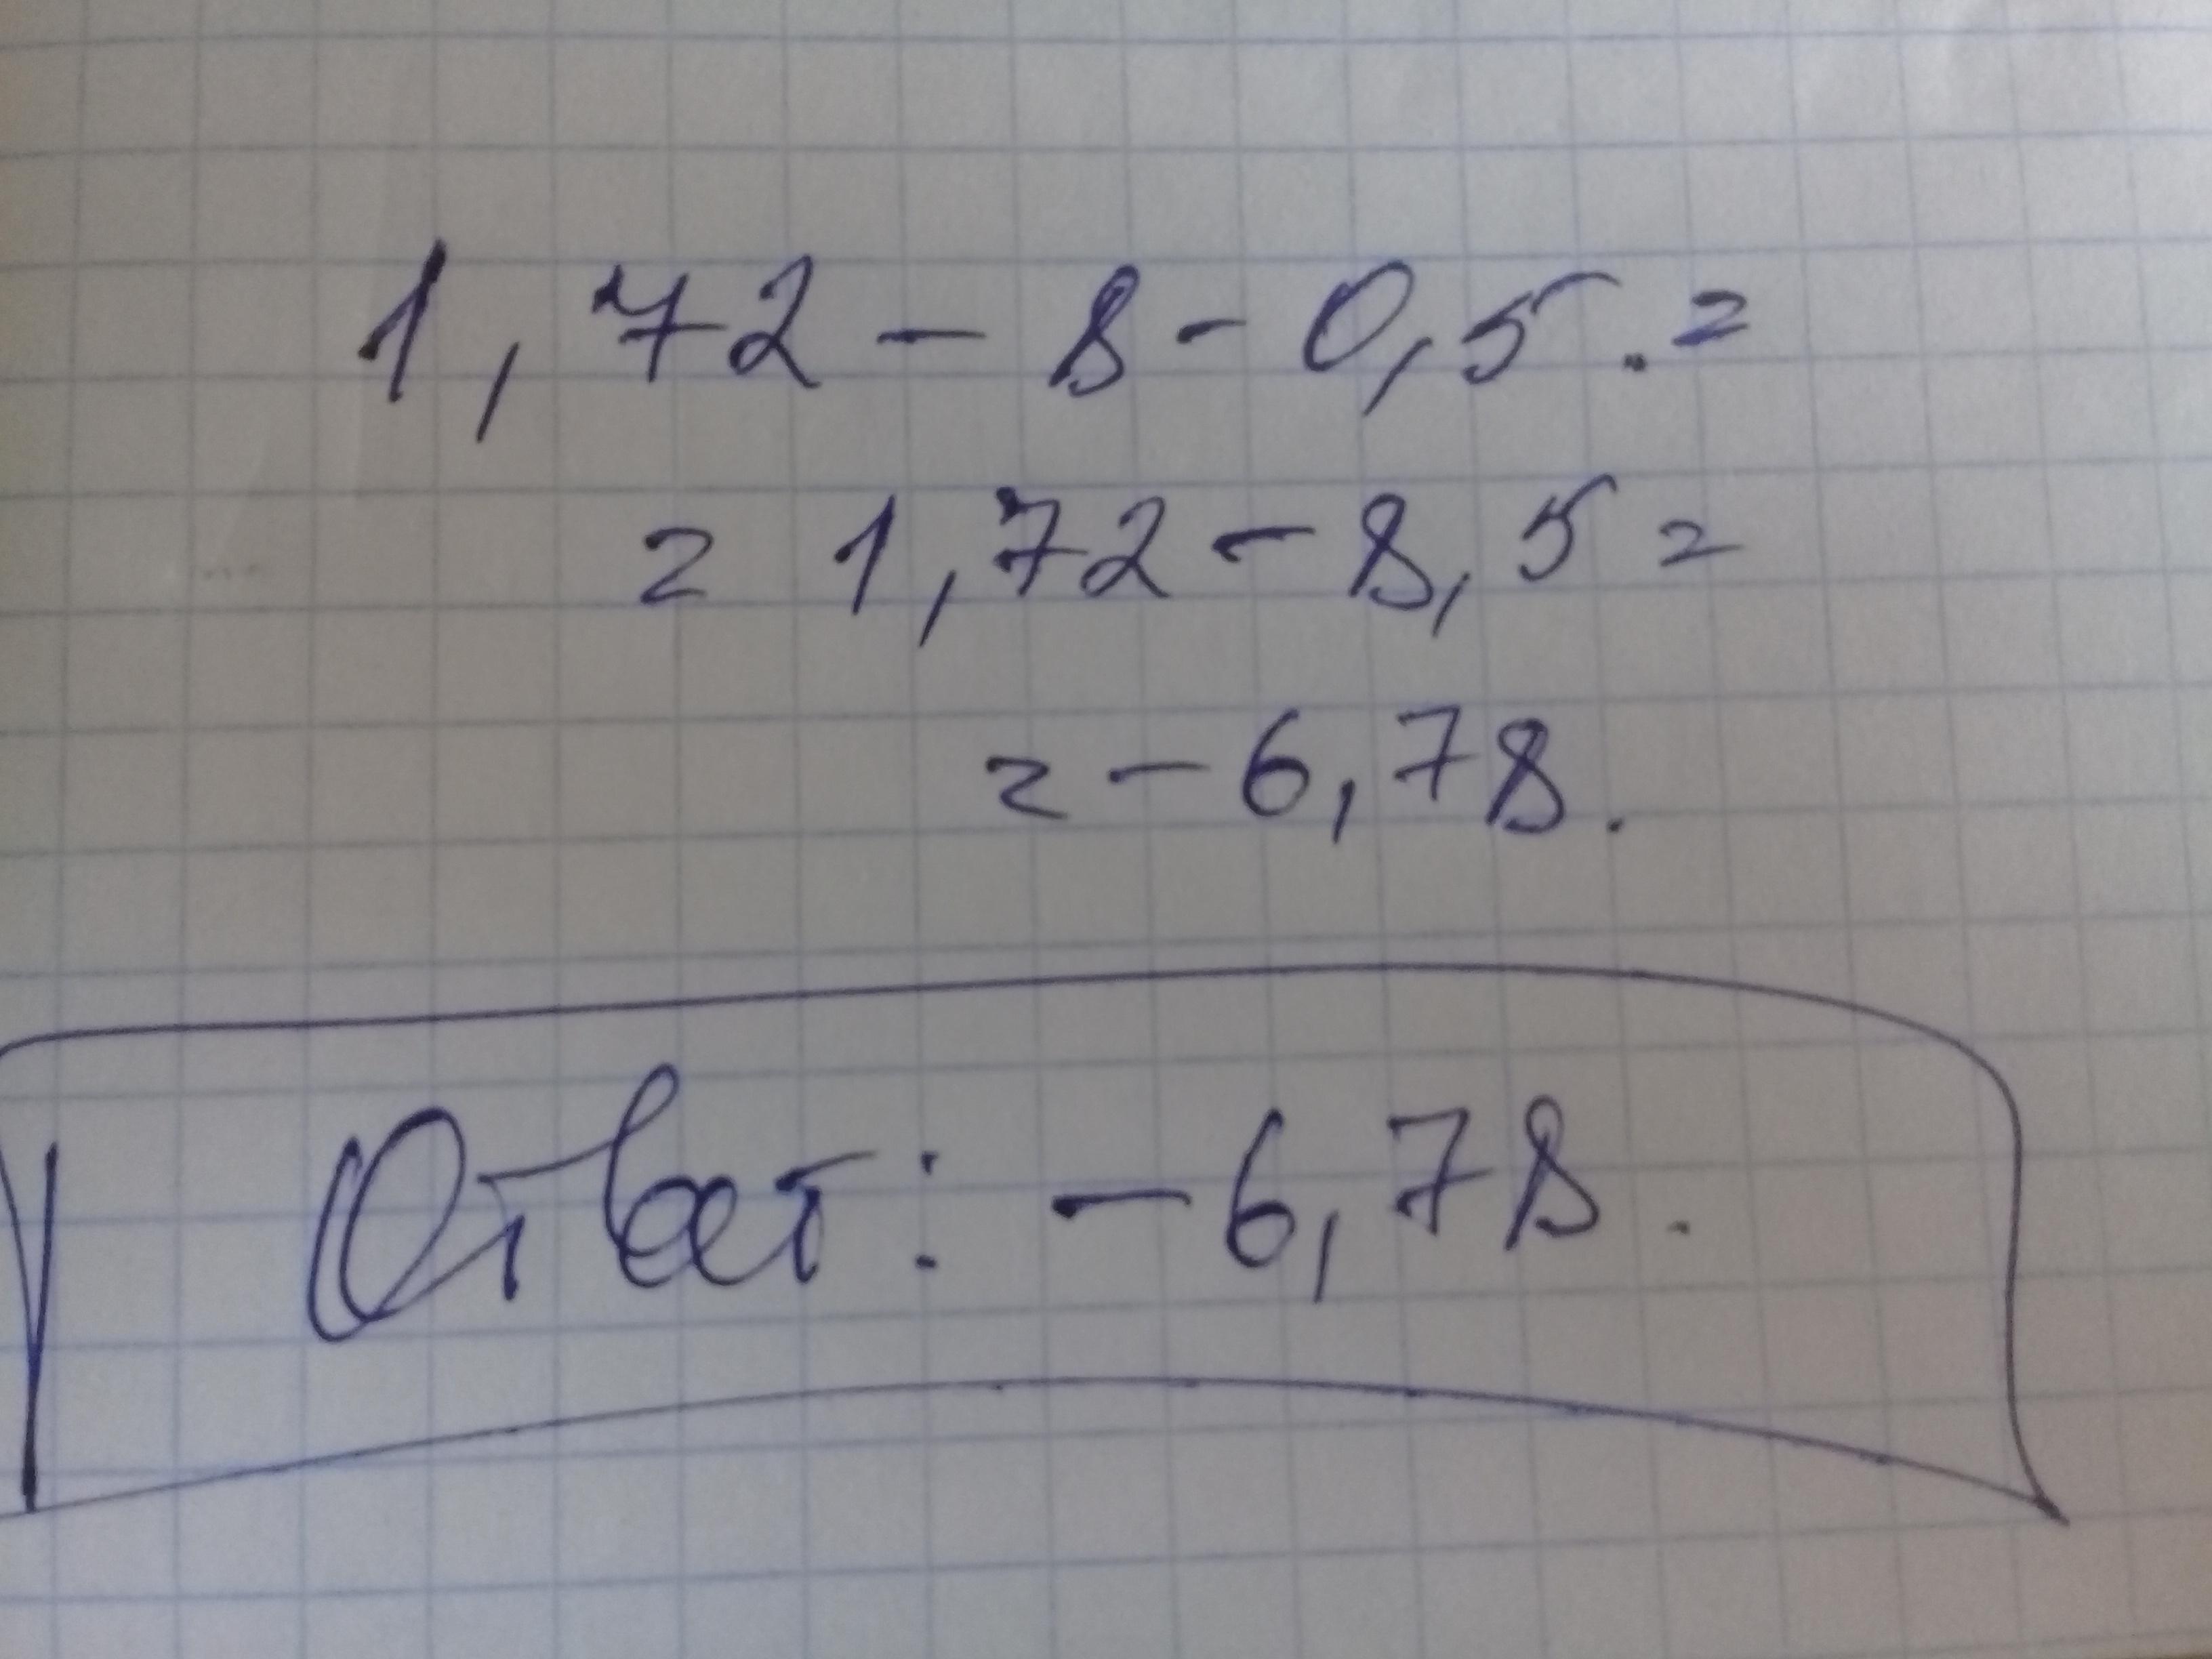 1,72 - 8 - 0,5. =
= 1,72 - 8,5 =
= - 6,78.
Ответ: - 6,78.